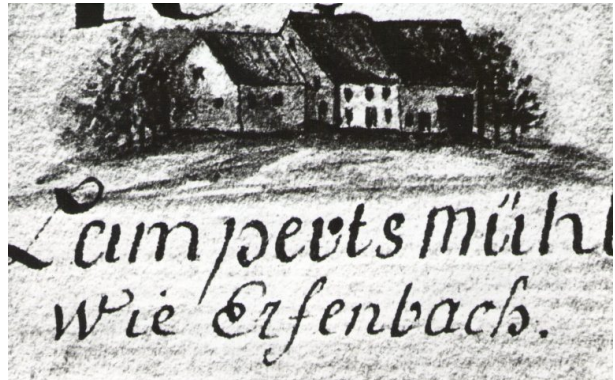 Lamperts mühl
wie Erfenbach.